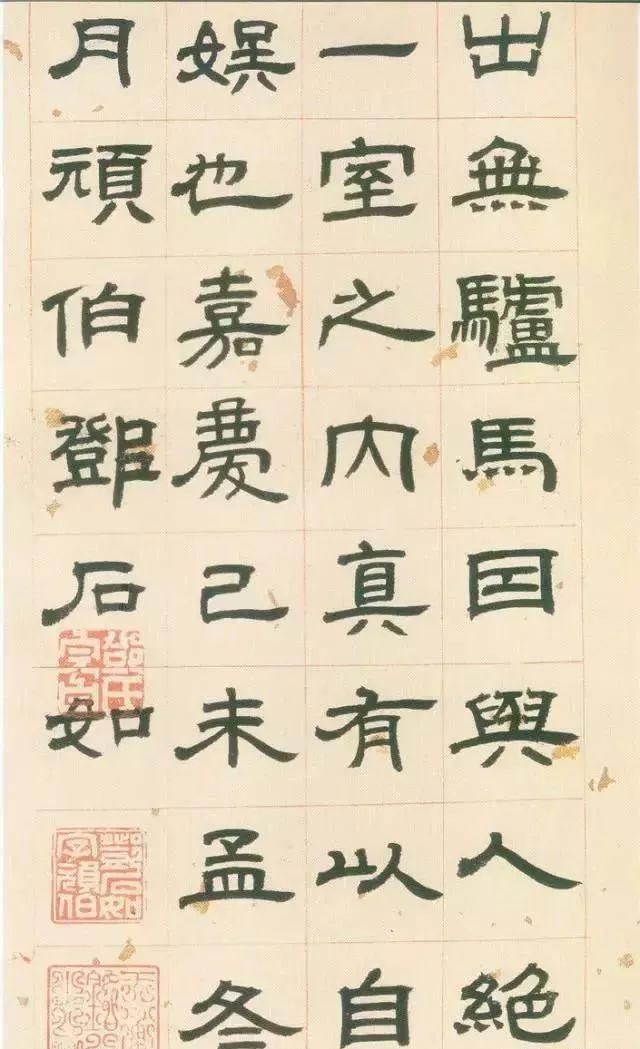 出無驢馬因與人絕
一室之內真有以自
娛也嘉慶己未孟冬
月頑伯鄧石如
鄧石如
字頑伯